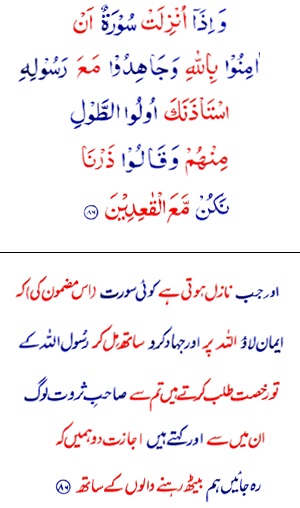 وَ اِذَاۤ اُنْزِلَتْ سُوْرَةٌ اَنْ
اٰمِنُوْا بِاللّٰهِ وَ جَاهِدُوْا مَعَ رَسُوْلِهِ
اسْتَاْذَنَكَ اُولُوا الطَّوْلِ
مِنْهُمْ وَ قَالُوْا ذَرْنَا
نَكُنْ مَّعَ الْقٰعِدِيْنَ ۸۶
اور جب نازل ہوتی ہے کوئی سورت (اس مضمون کی) کہ
ایمان لاؤ اللہ پر اور جہاد کرو ساتھ مل کر رسُول اللہ کے
تو رخصت طلب کرتے ہیں تم سے صاحبِ ثروت لوگ
ان میں سے اور کہتے ہیں اجازت دو ہمیں کہ
رہ جائیں ہم بیٹھ رہنے والوں کے ساتھ ۸۶